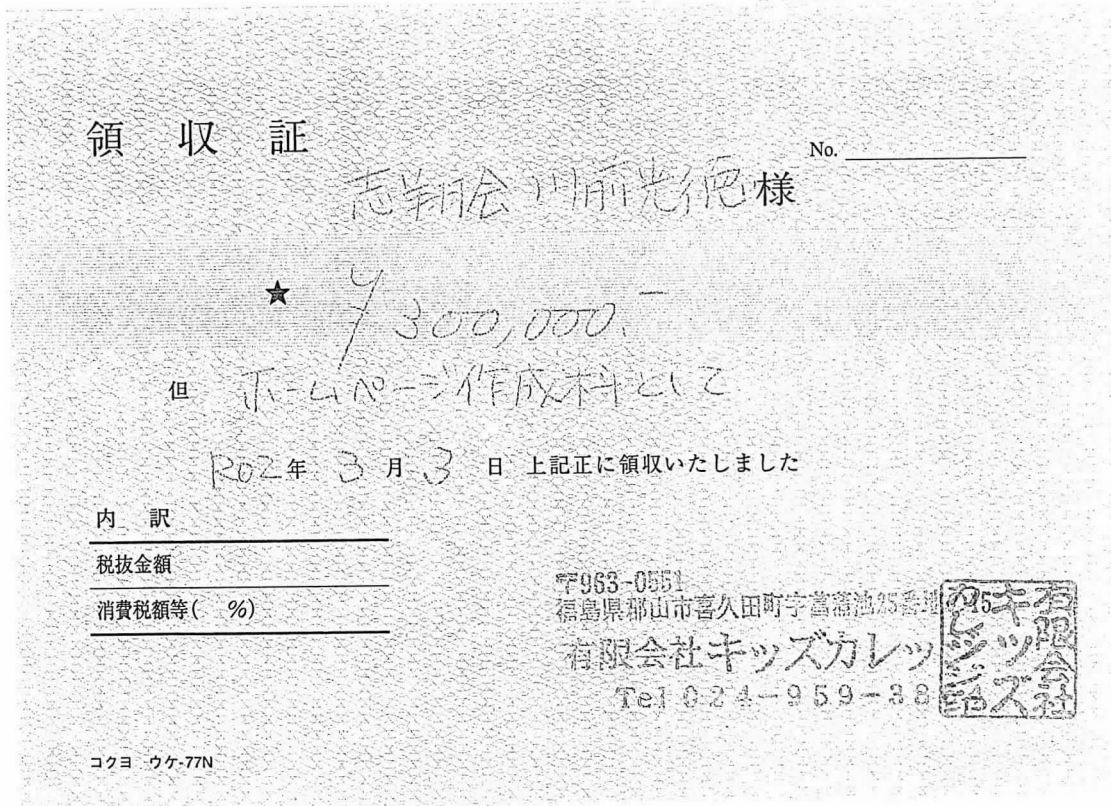 領収証
No.
志翔会 川前光徳 様
★ ¥300,000.-
但 ホームページ作成料として
R02年 3月 3日 上記正に領収いたしました
内訳
税抜金額
消費税額等( %)
〒963-0551
福島県郡山市喜久田町字菖蒲池25番地
有限会社キッズカレッジ
Tel 024-959-38
有限会社
キッズ
カレッジ
コクヨ ウケ-77N